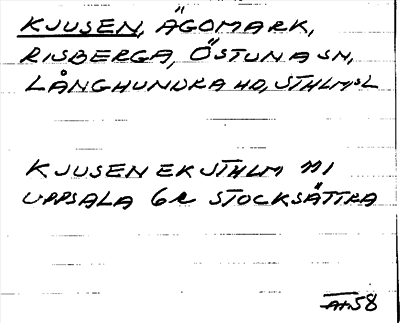 KJUSEN, ÄGOMARK,
RISBERGA, ÖSTUNA SN,
LÅNGHUNDRA HD, STHLMSL
KJUSEN EK STHLM 111
UPPSALA 6R STOCKSÄTTRA
58